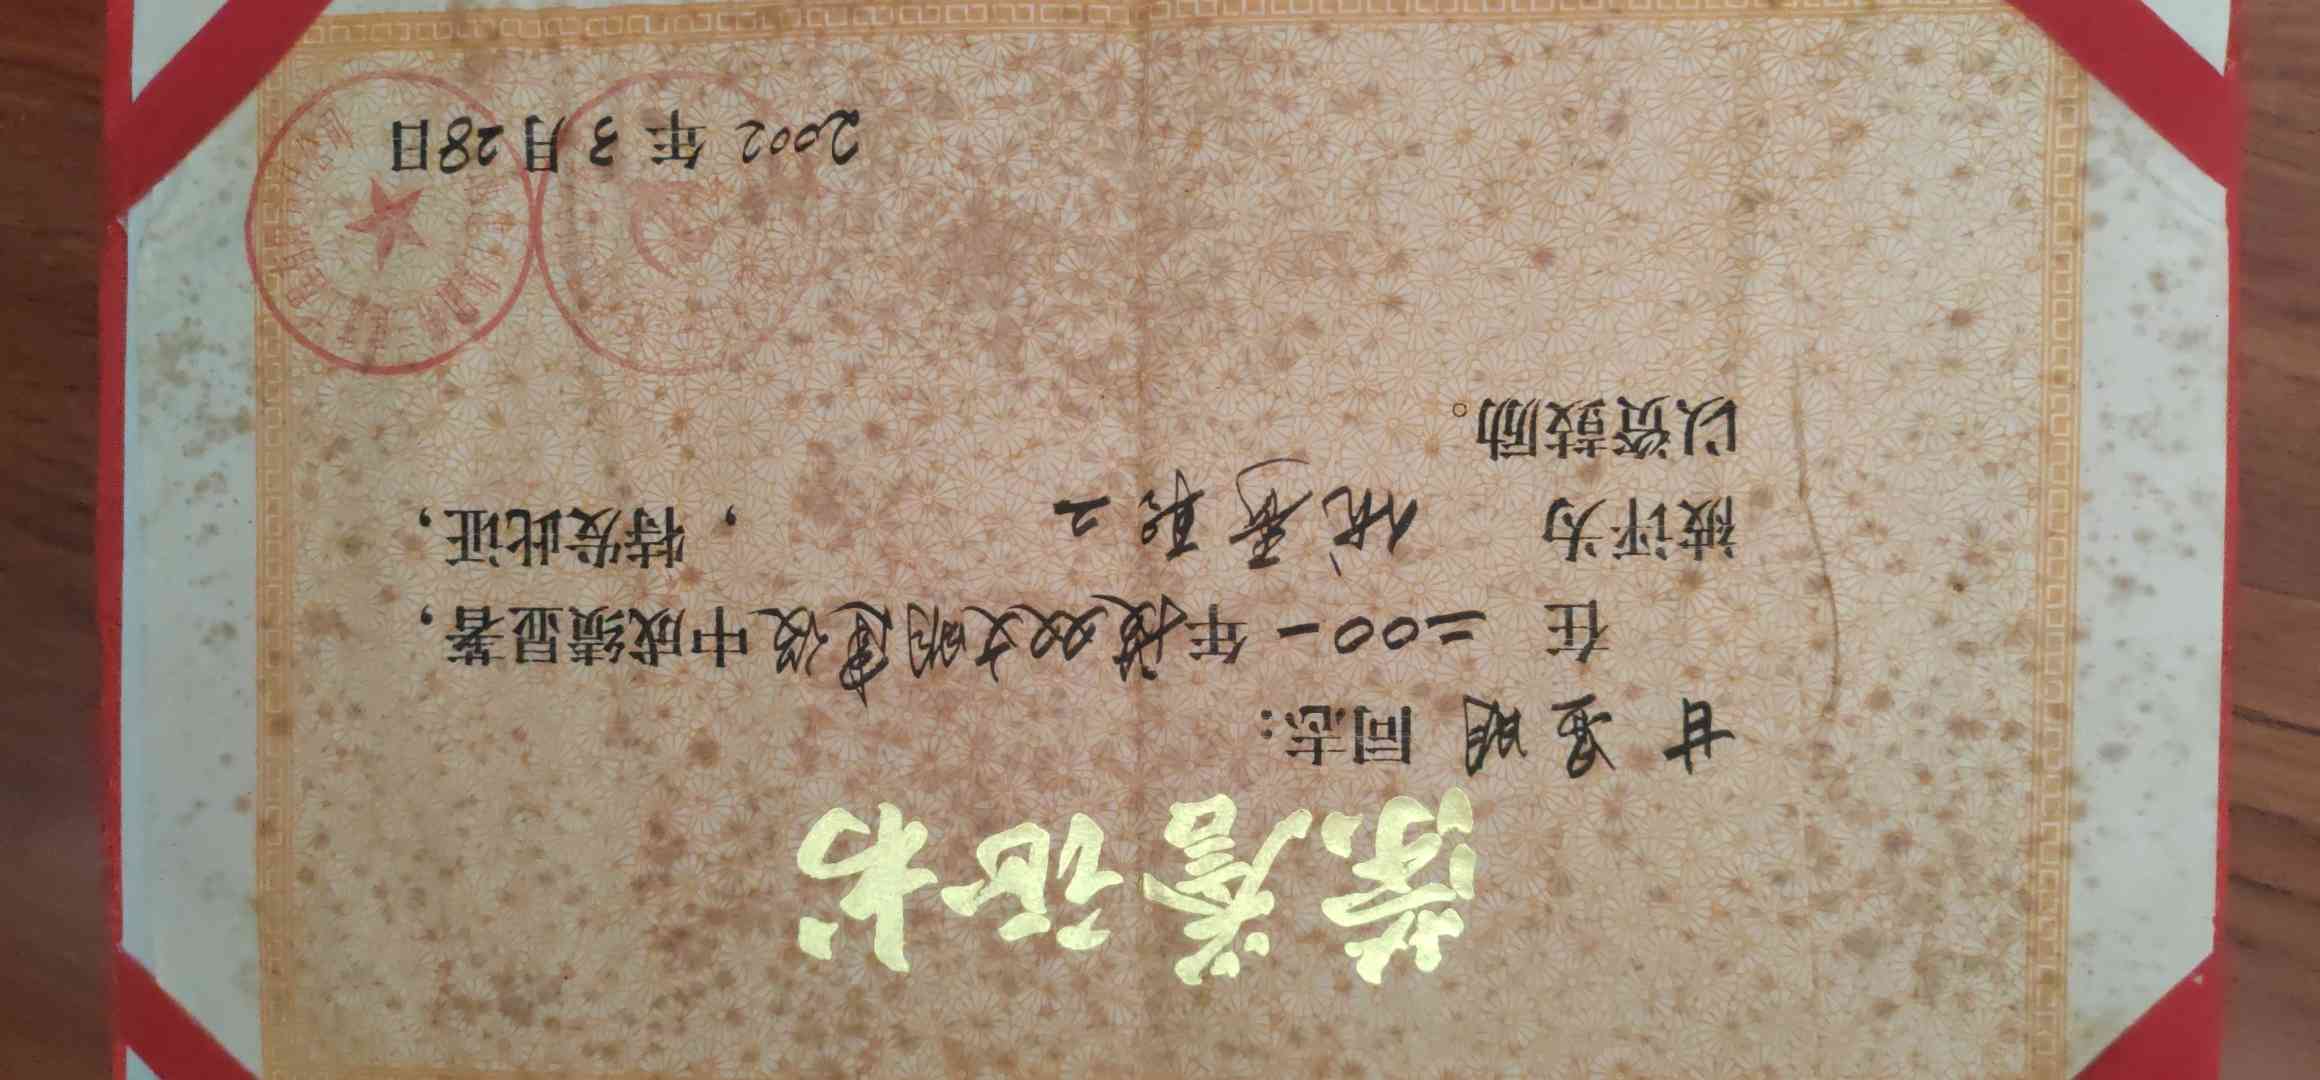 荣誉证书
甘 明 同志：
在 二00一年度双文明建设中成绩显著，
被评为 优秀职工 ，特发此证，
以资鼓励。
2002年3月28日